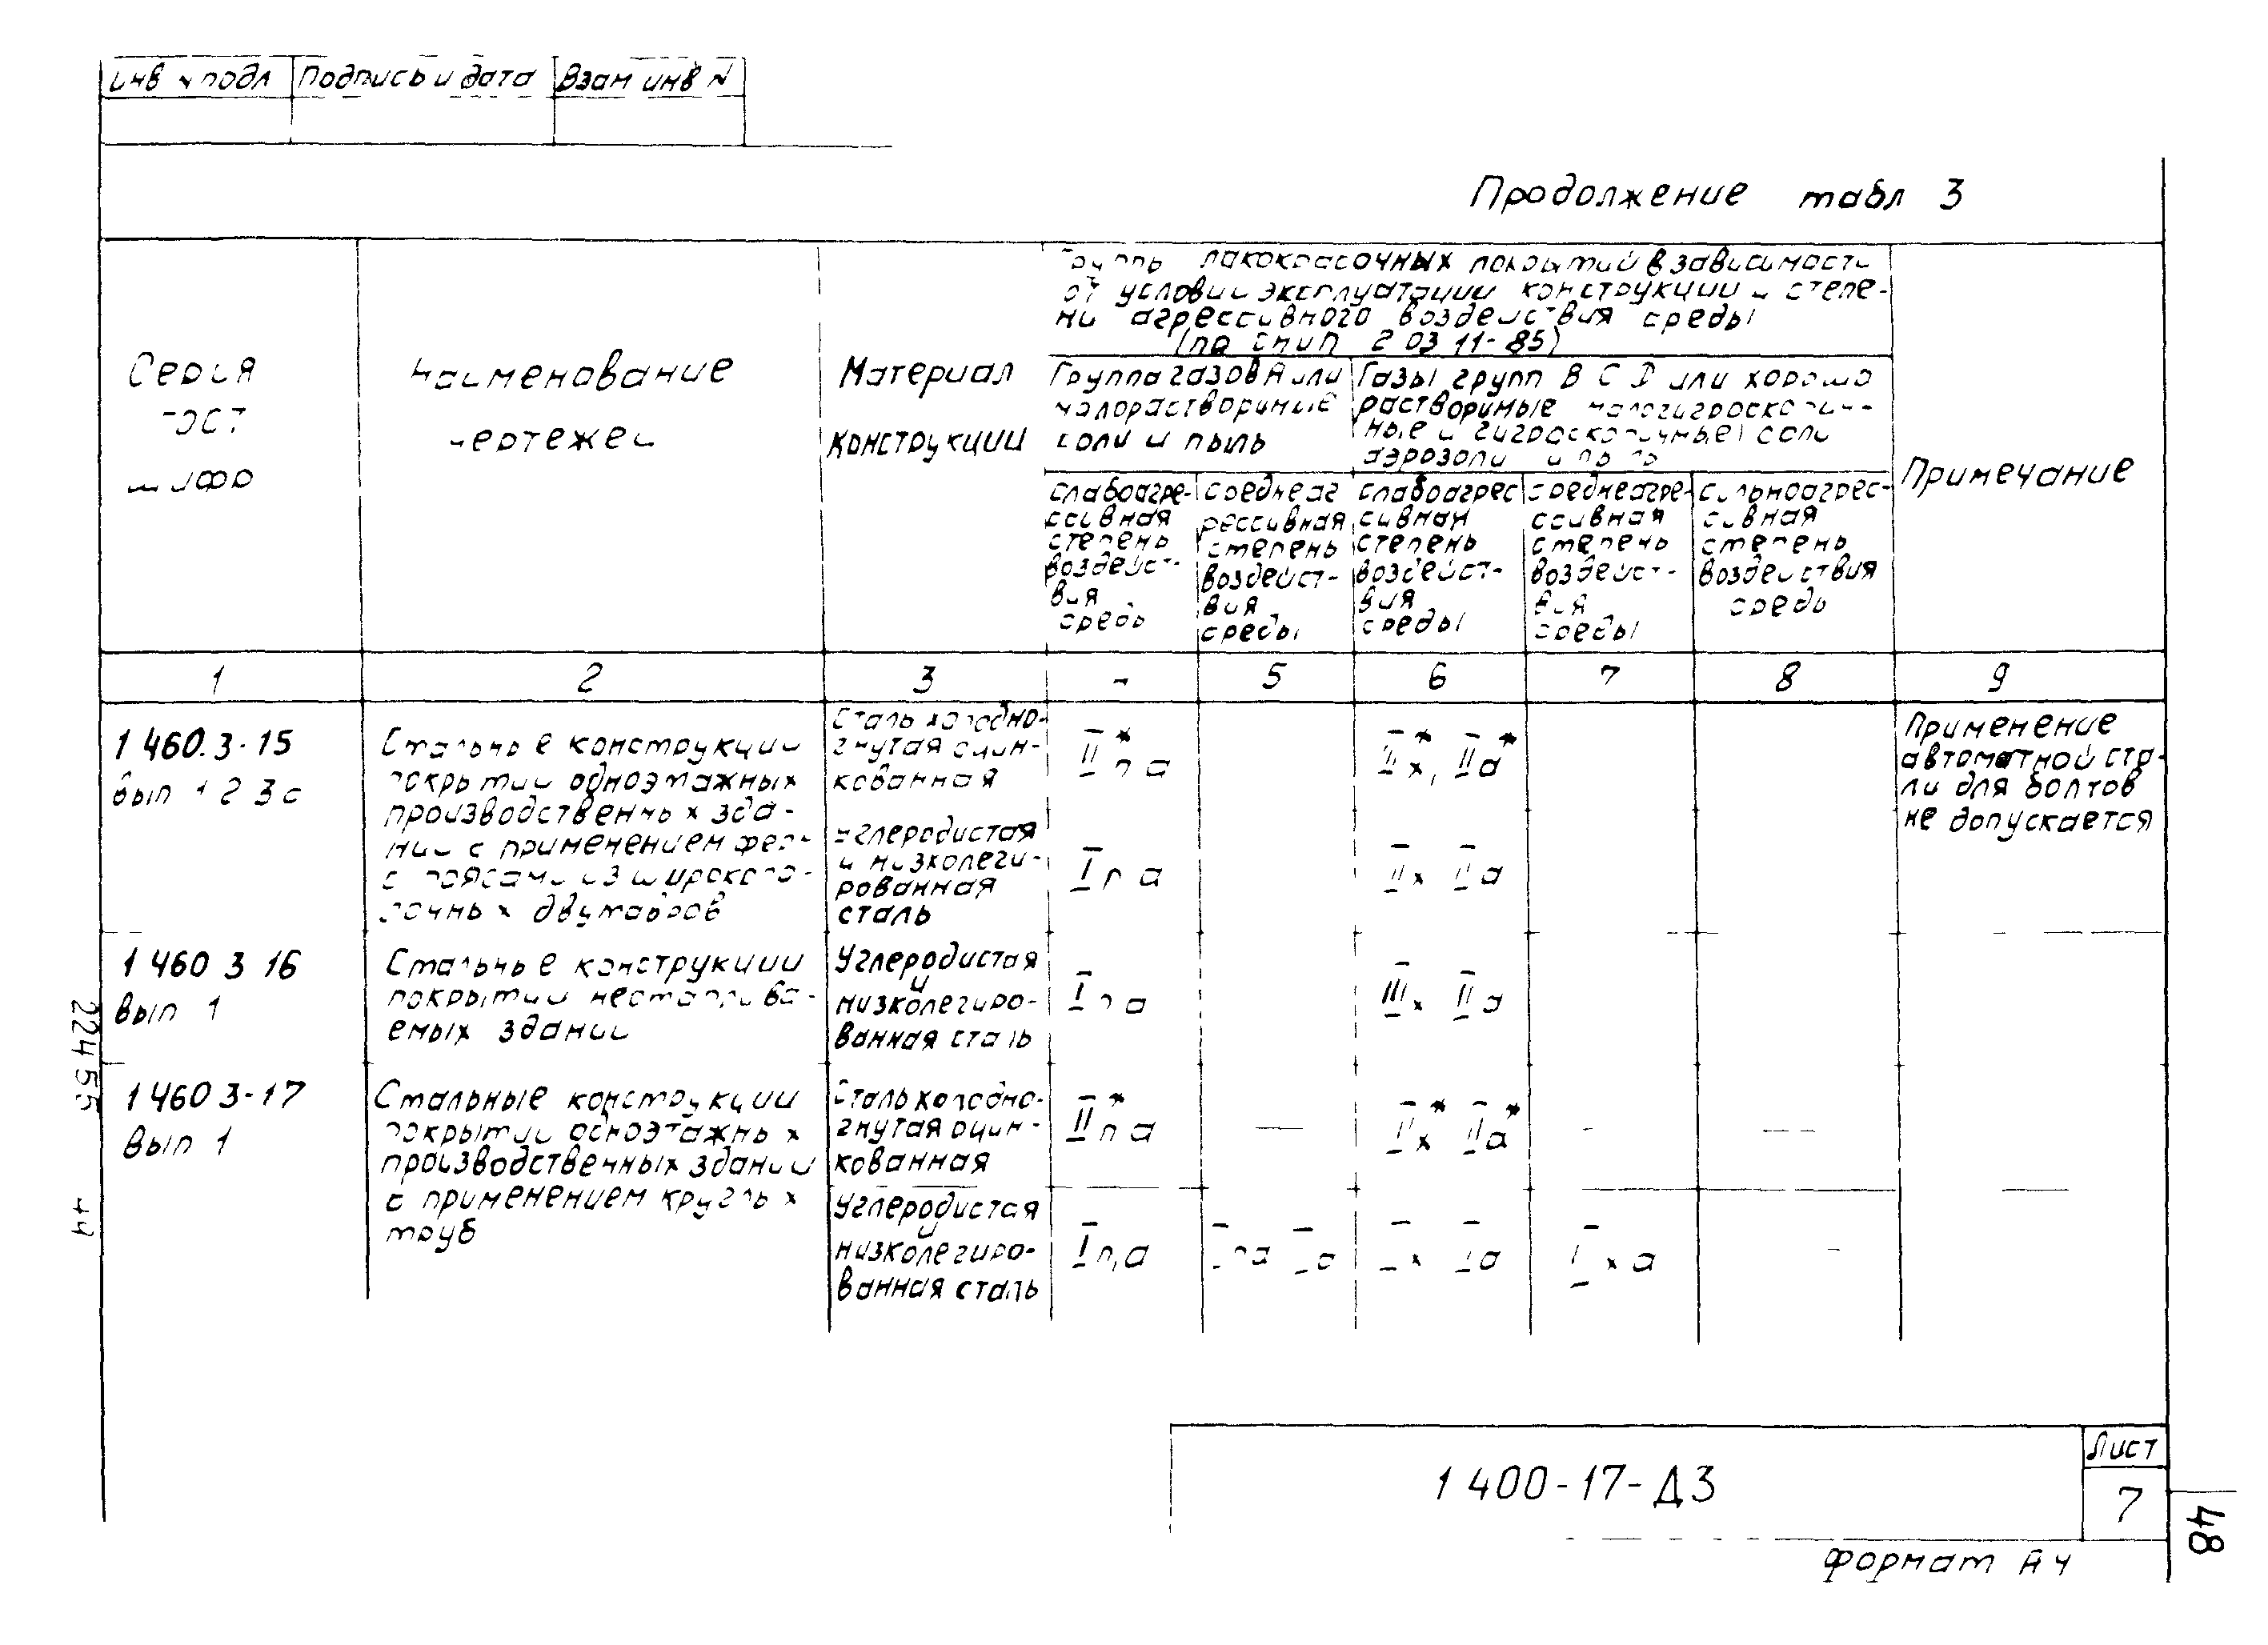 инв N подл Подпись и дата Взам инв N
Продолжение табл 3
Серия
ГОСТ
шифр
Наименование
чертежей
Материал
конструкции
Группы лакокрасочных покрытий в зависимости
от условий эксплуатации конструкции и степе-
ни агрессивного воздействия среды
(по СНиП 2 03 11-85)
Группа газов А или
малорастворимые
соли и пыль
Газы групп В С D или хорошо
растворимые малогигроскопич-
ные и гигроскопичные) соли
аэрозоли и пыль
слабоагре-
ссивная
степень
воздейст-
вия
среды
среднеаг
рессивная
степень
воздейст-
вия
среды
слабоагрес
сивная
степень
воздейст-
вия
среды
среднеагре-
ссивная
степень
воздейст-
вия
среды
сильноагрес-
сивная
степень
воздействия
среды
Примечание
1 2 3 5 6 7 8 9
1 460.3-15
Вып 1 2 3 с
Стальные конструкции
покрытий одноэтажных
производственных зда-
ний с применением ферм
с поясами из широкопо-
лочных двутавров
Сталь холодно-
гнутая оцин-
кованная
II* п а
II* х, II* а
Применение
автоматной ста-
ли для болтов
не допускается
Углеродистая
и низколеги-
рованная
сталь
I п а
II х II а
1 460 3 16
Вып 1
Стальные конструкции
покрытий неотаплива-
емых зданий
Углеродистая
и
низколегиро-
ванная сталь
I п а
III х II а
1 460 3-17
Вып 1
Стальные конструкции
покрытий одноэтажных
производственных зданий
с применением круглых
труб
Сталь холодно-
гнутая оцин-
кованная
II* п а — II* х II* а - —
Углеродистая
и
низколегиро-
ванная сталь
I п, а
х а
-
22455 44
1 400-17-Д3
Лист
7
48
формат А4